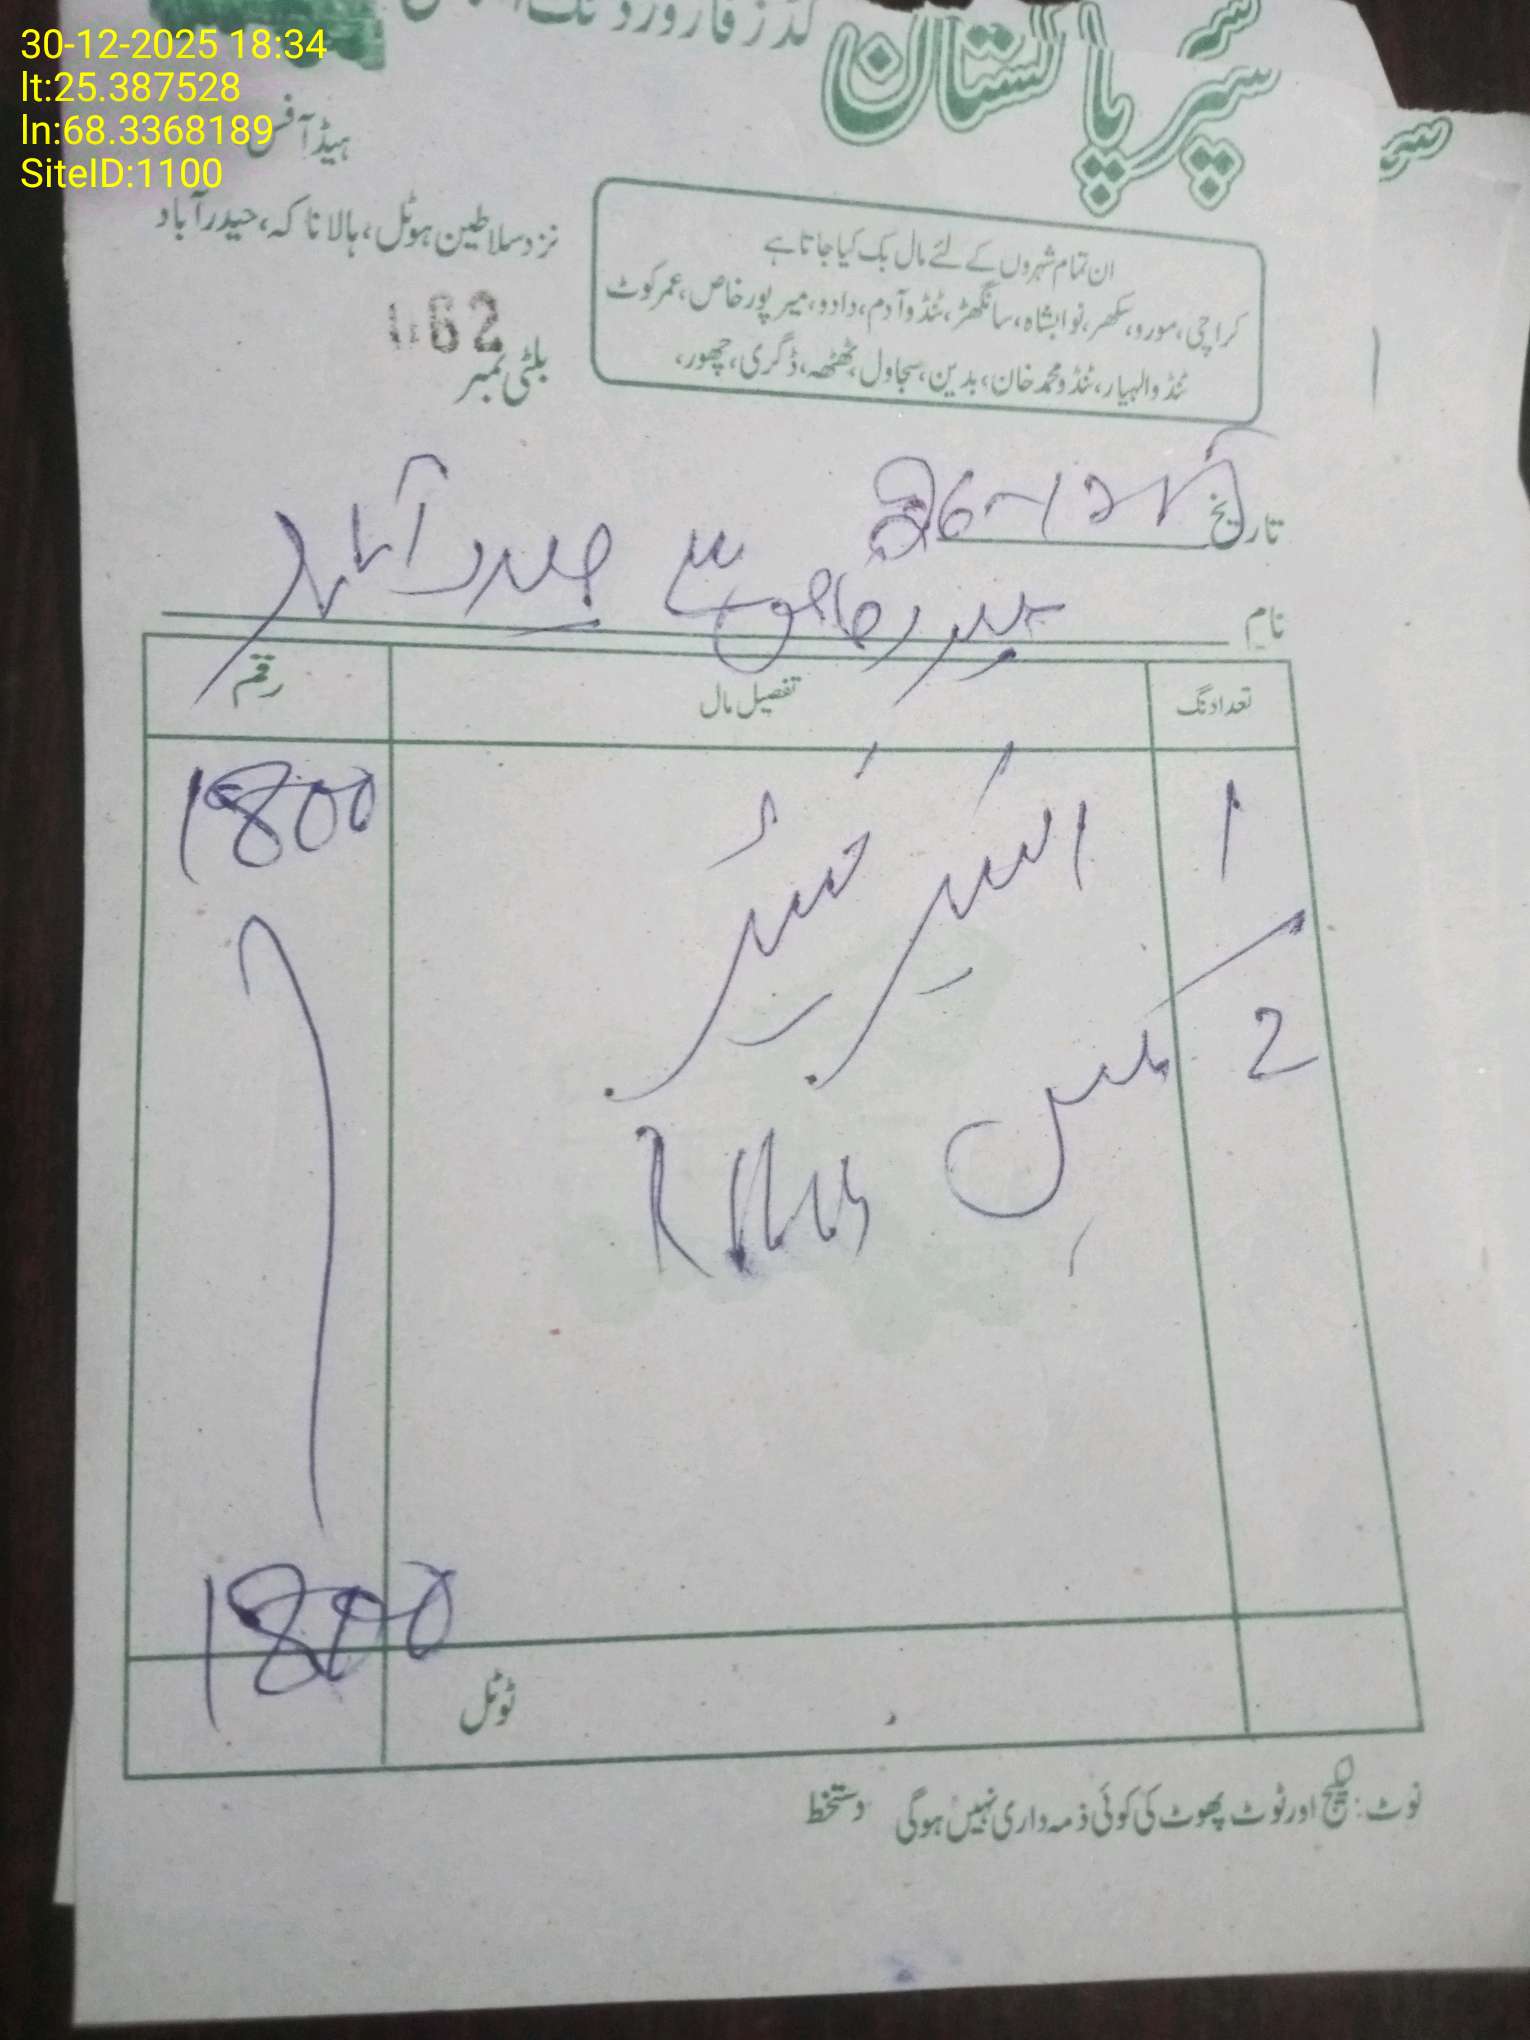 30-12-2025 18:34
lt:25.387528
ln:68.3368189
SiteID:1100
سپر پاکستان
گڈز فارورڈنگ
ہیڈ آفس
نزد سلاطین ہوٹل، ہالا ناکہ، حیدرآباد
ان تمام شہروں کے لئے مال بک کیا جاتا ہے
کراچی، مورو، سکھر، نوابشاہ، سانگھڑ، ٹنڈو آدم، دادو، میرپورخاص، عمرکوٹ
ٹنڈوالہیار، ٹنڈو محمد خان، بدین، سجاول، ٹھٹھہ، ڈگری، چھور،
بلٹی نمبر
تاریخ 26-12
نام میرپورخاص سے حیدرآباد
تعداد نگ تفصیل مال رقم
1 1800
2
1800
ٹوٹل
نوٹ: لیکیج اور ٹوٹ پھوٹ کی کوئی ذمہ داری نہیں ہوگی دستخط